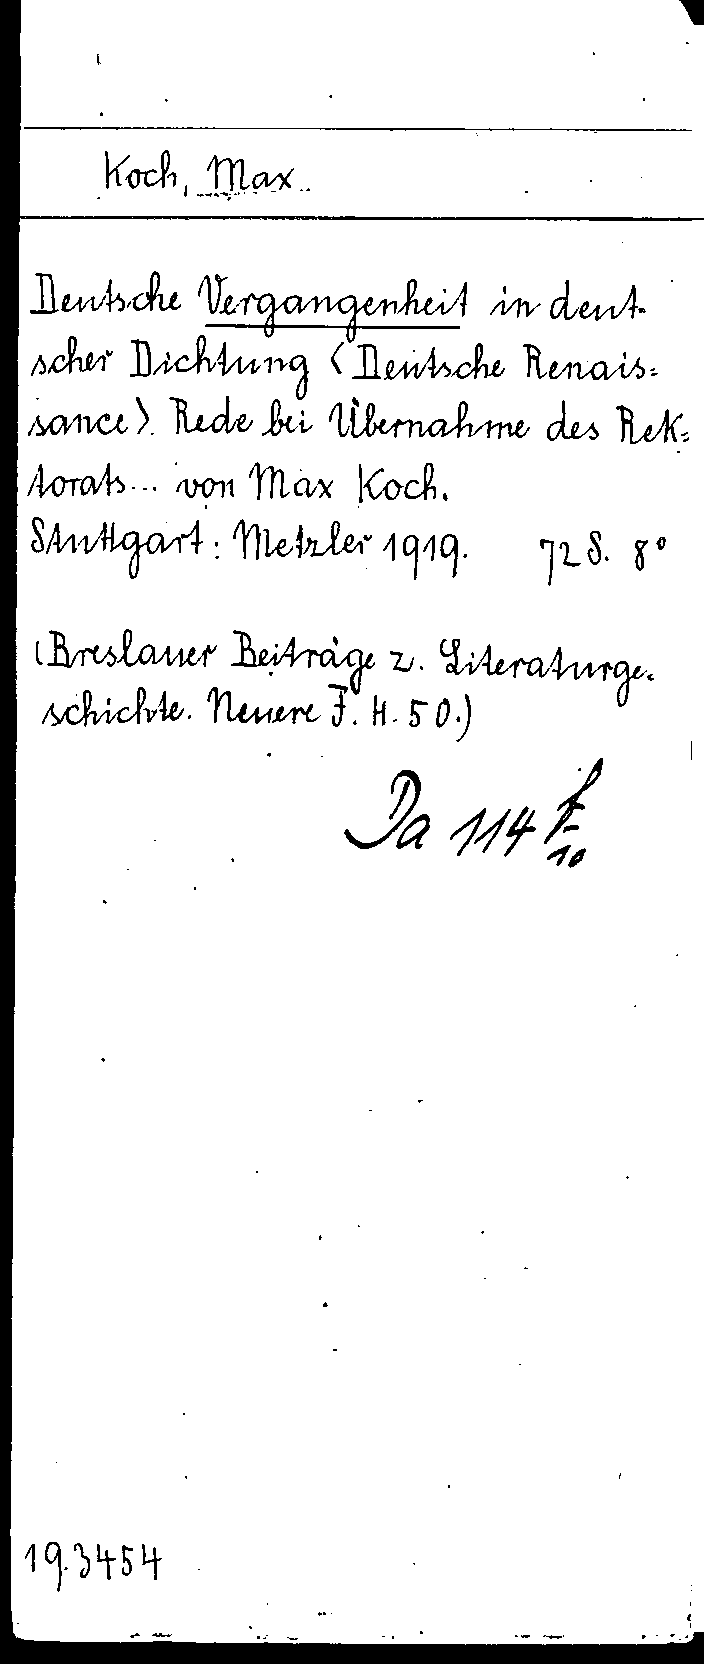 Koch, Max
Deutsche Vergangenheit in deut-
scher Dichtung <Deutsche Renais=
sance>. Rede bei Übernahme des Rek=
torats... von Max Koch.
Stuttgart: Metzler 1919. 72 S. 8°
(Breslauer Beiträge z. Literaturge=
schichte. Neuere F. H. 50.)
Da 114 f
10
19.3454